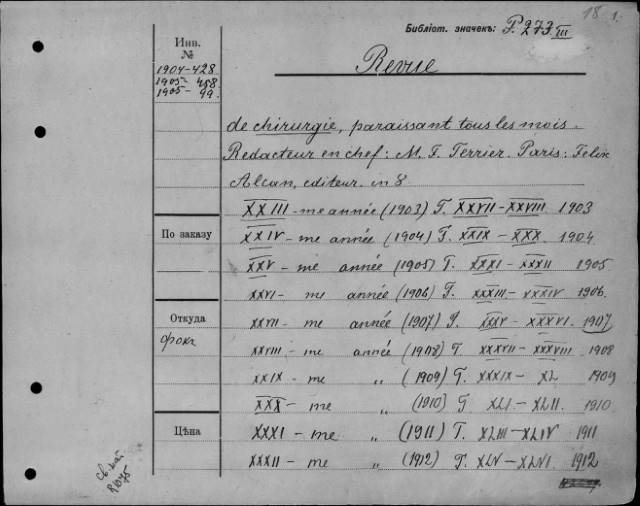 18
Библіот. значекъ: P. 273 III
Инв.
№
1904-428
1905-458
1905-99.
Revue
de chirurgie, paraissant tous les mois.
Redacteur en chef: M. F. Terrier. Paris: Felix
Alcan, editeur. in 8
XXIII-me année (1903) T. XXVII-XXVIII 1903
По заказу
XXIV-me année (1904) T. XXIX-XXX. 1904
XXV-me année (1905) T. XXXI-XXXII 1905
XXVI-me année (1906) T. XXXIII-XXXIV 1906.
Откуда
XXVII-me année (1907) T. XXXV-XXXVI. 1907
фокг
XXVIII-me année (1908) T. XXXVII-XXXVIII 1908
XXIX-me " (1909) T. XXXIX-XL 1909
XXX-me " (1910) T. XLI-XLII. 1910
Цѣна
XXXI-me " (1911) T. XLIII-XLIV 1911
XXXII-me " (1912) T. XLV-XLVI. 1912